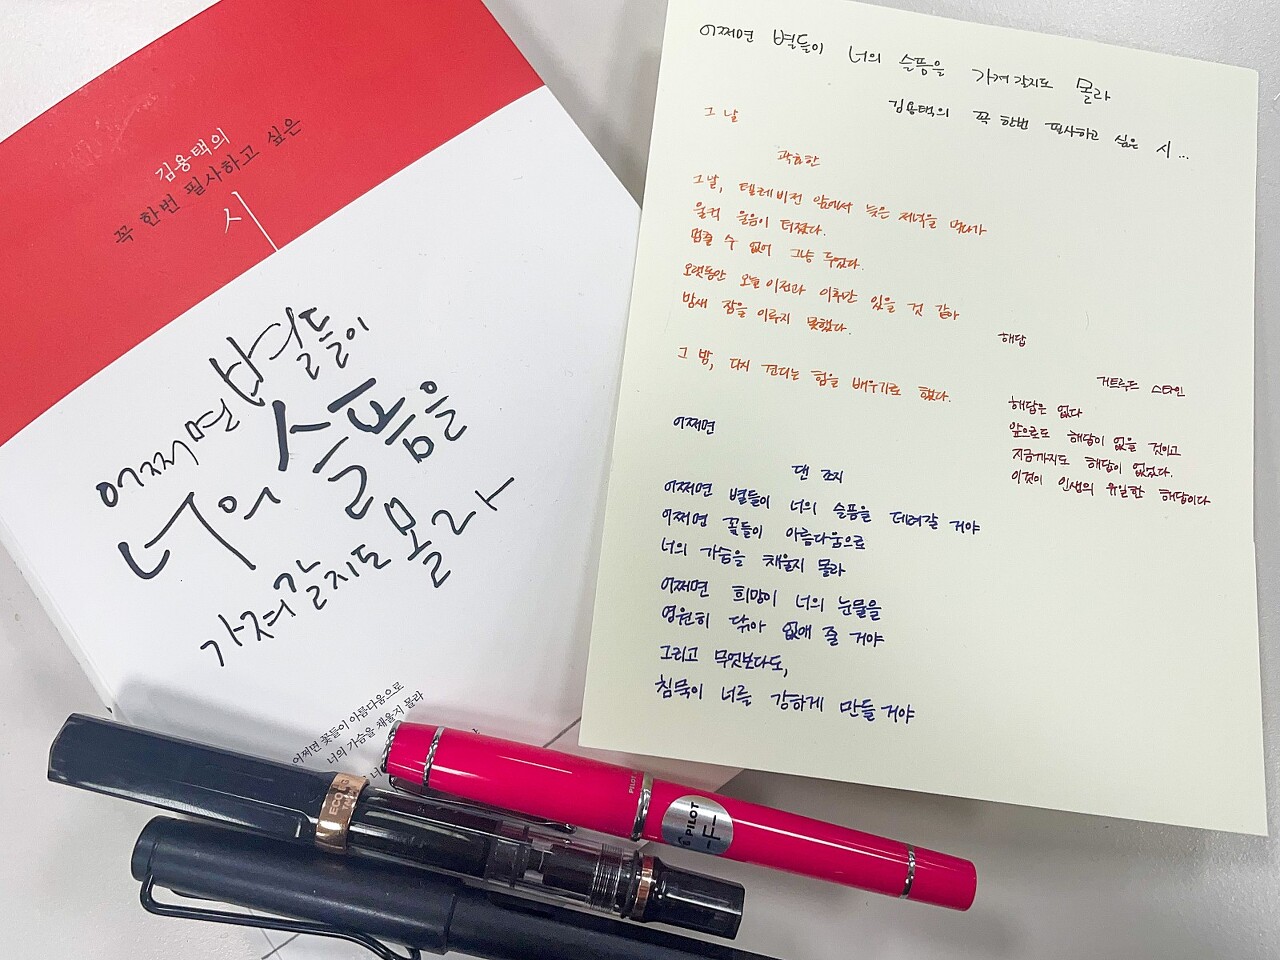 김용택의
꼭 한번 필사하고 싶은
시
어쩌면 별들이
너의 슬픔을
가져갈지도 몰라
어쩌면 꽃들이 아름다움으로
너의 가슴을 채울지 몰라
어쩌면 별들이 너의 슬픔을 가져갈지도 몰라
김용택의 꼭 한번 필사하고 싶은 시...
그 날
곽효환
그날, 텔레비전 앞에서 늦은 저녁을 먹다가
울컥 울음이 터졌다.
멈출 수 없어 그냥 두었다.
오랫동안 오늘 이전과 이후만 있을 것 같아
밤새 잠을 이루지 못했다.
그 밤, 다시 견디는 힘을 배우기로 했다.
해답
거트루드 스타인
해답은 없다
앞으로도 해답이 없을 것이고
지금까지도 해답이 없었다.
이것이 인생의 유일한 해답이다
어쩌면
댄 조지
어쩌면 별들이 너의 슬픔을 데려갈 거야
어쩌면 꽃들이 아름다움으로
너의 가슴을 채울지 몰라
어쩌면 희망이 너의 눈물을
영원히 닦아 없애 줄 거야
그리고 무엇보다도,
침묵이 너를 강하게 만들 거야
PILOT
PILOT
F